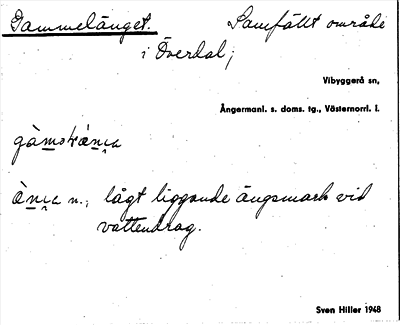 Gammelänget. Samfällt område
i Överdal;
Vibyggerå sn,
Ångermanl. s. doms. tg., Västernorrl. l.
n., lågt liggande ängsmark vid
vattendrag.
Sven Hiller 1948